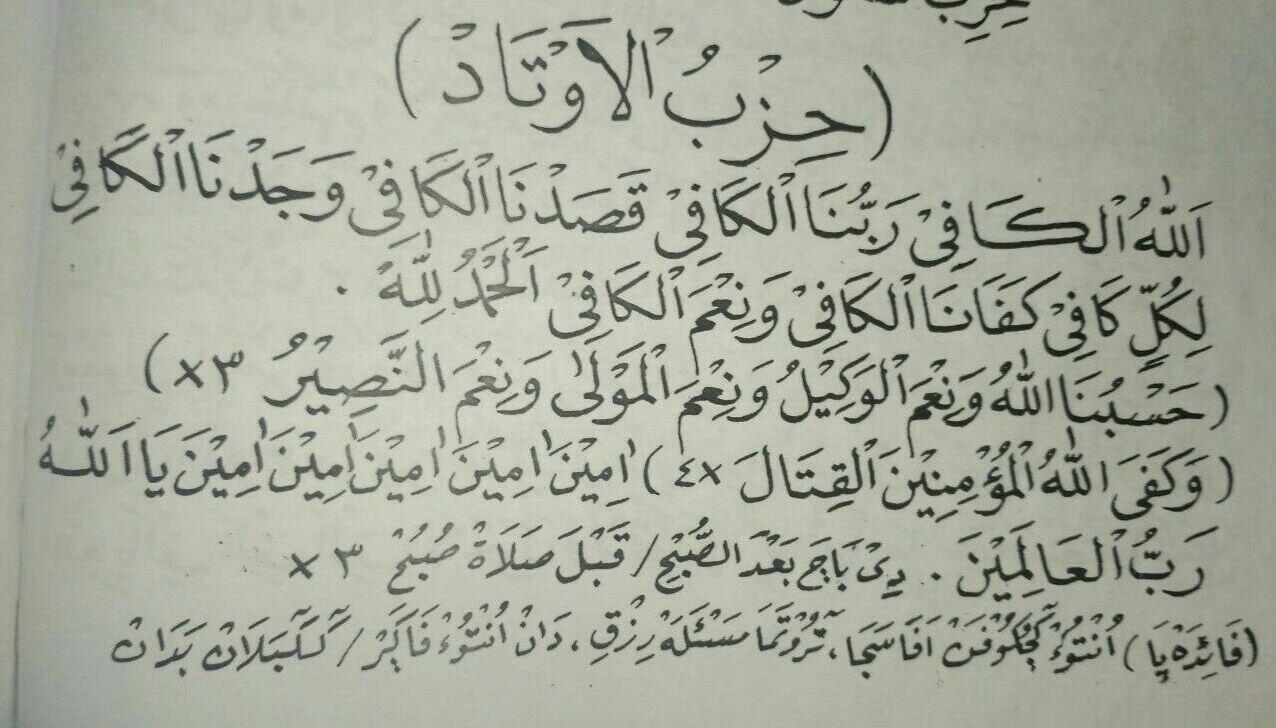 حِزِب
(حِزْبُ الْاَوْتَادْ)
اَللّٰهُ الْكَافِيْ رَبُّنَا الْكَافِيْ قَصَدْنَا الْكَافِيْ وَجَدْنَا الْكَافِيْ
لِكُلٍّ كَافِيْ كَفَانَا الْكَافِيْ وَنِعْمَ الْكَافِيْ اَلْحَمْدُ لِلّٰهْ .
(حَسْبُنَا اللّٰهُ وَنِعْمَ الْوَكِيْلُ وَنِعْمَ الْمَوْلٰى وَنِعْمَ النَّصِيْرُ ×٣)
(وَكَفَى اللّٰهُ الْمُؤْمِنِيْنَ الْقِتَالَ ×٤) اٰمِيْنَ اٰمِيْنَ اٰمِيْنَ اٰمِيْنَ اٰمِيْنَ يَا اَللّٰهُ
رَبُّ الْعَالَمِيْنَ . دِيْ بَاچَ بَعْدَ الصُّبْحِ / قَبْلَ صَلَاةْ صُبُحْ ×٣
(فَائِدَهْ ڽَا) اُنْتُوْءْ كَچُكُوْفَنْ اَفَا سَجَا، تَرُوْتَمَا مَسْئَلَهْ رِزْقِ، دَانْ اُنْتُوْءْ فَاكَرْ / بَدَانْ